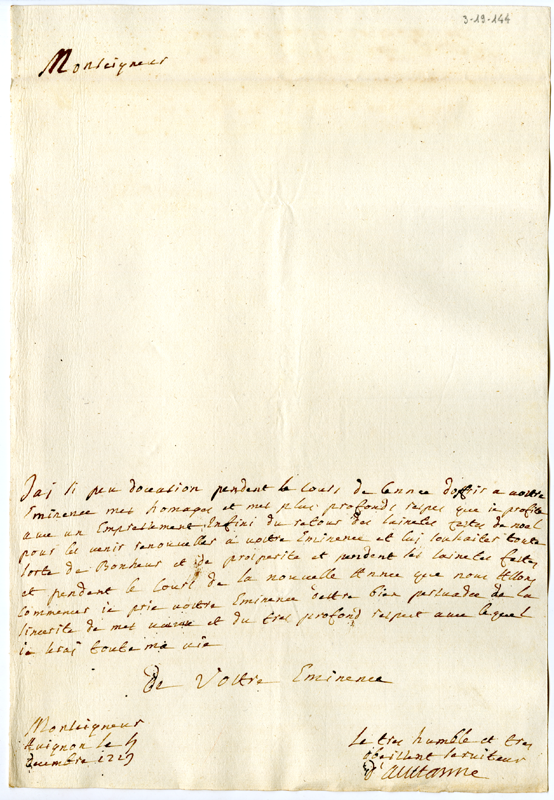 3-19-144
Monseigneur
Jai si peu docasion pendent le cours de lennee doffrir a vostre
Eminence mes homages et mes plus profonds respes que ie profite
avec un Empressement Enfini du retour des sainctes festes de noel
pour les venir renouveller a vostre Eminence et luj souhaiter toute
sorte de Bonheur et de prosperite et pendent les sainctes festes
et pendent le cours de la nouvelle Annee que nous Allons
Commencer ie prie vostre Eminence destre bien persuadee de la
sincerite de mes vœux et du tres profond respect avec lequel
ie serai toute ma vie
De Vostre Eminence
Monseigneur
Avignon le
decembre
Le tres humble et tres
obeissent serviteur
d'autanne